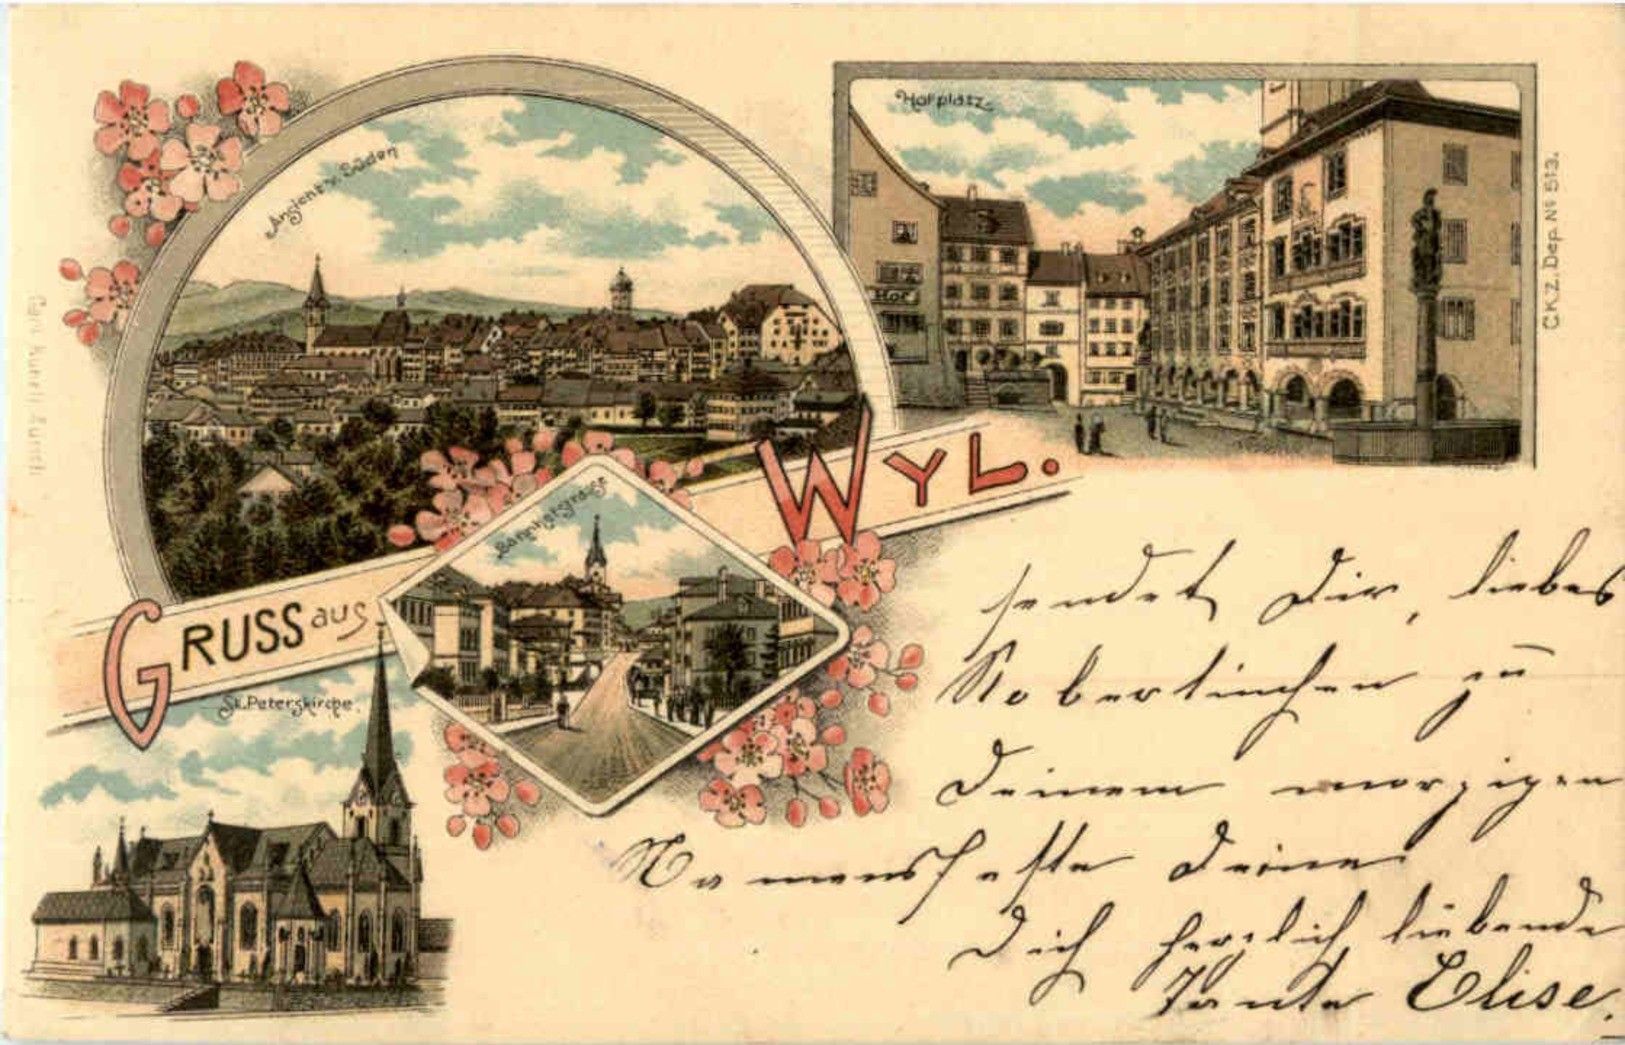 Ansicht v. Süden
Hofplatz
Hof
C.K.Z. Dep. No 513.
Carl Künzli Zürich
GRUSS aus WYL.
Bahnhofstrasse
St. Peterskirche.
sendet Dir, liebes
Robertinchen zu
Deinem morgigen
Namensfeste Deine
Dich herzlich liebende
Tante Elise.